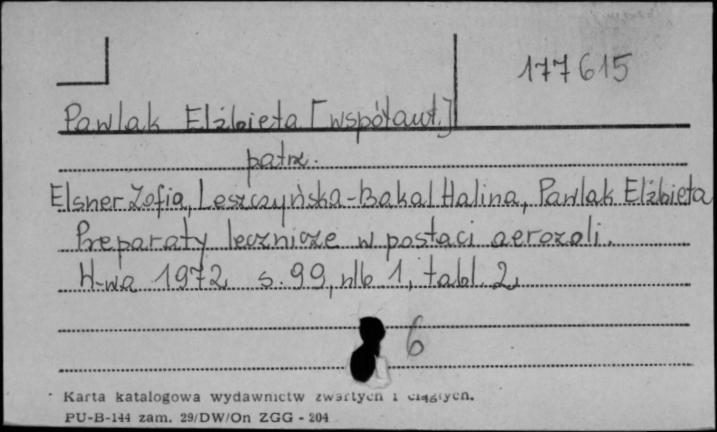 177615
Pawlak Elżbieta [współaut.]
patrz.
Elsner Zofia, Leszczyńska-Bakal Halina, Pawlak Elżbieta
Preparaty lecznicze w postaci aerozoli.
W-wa 1972 s. 99, nlb 1, tabl. 2,
6
Karta katalogowa wydawnictw zwartych i ciągłych.
PU-B-144 zam. 29/DW/On ZGG - 204